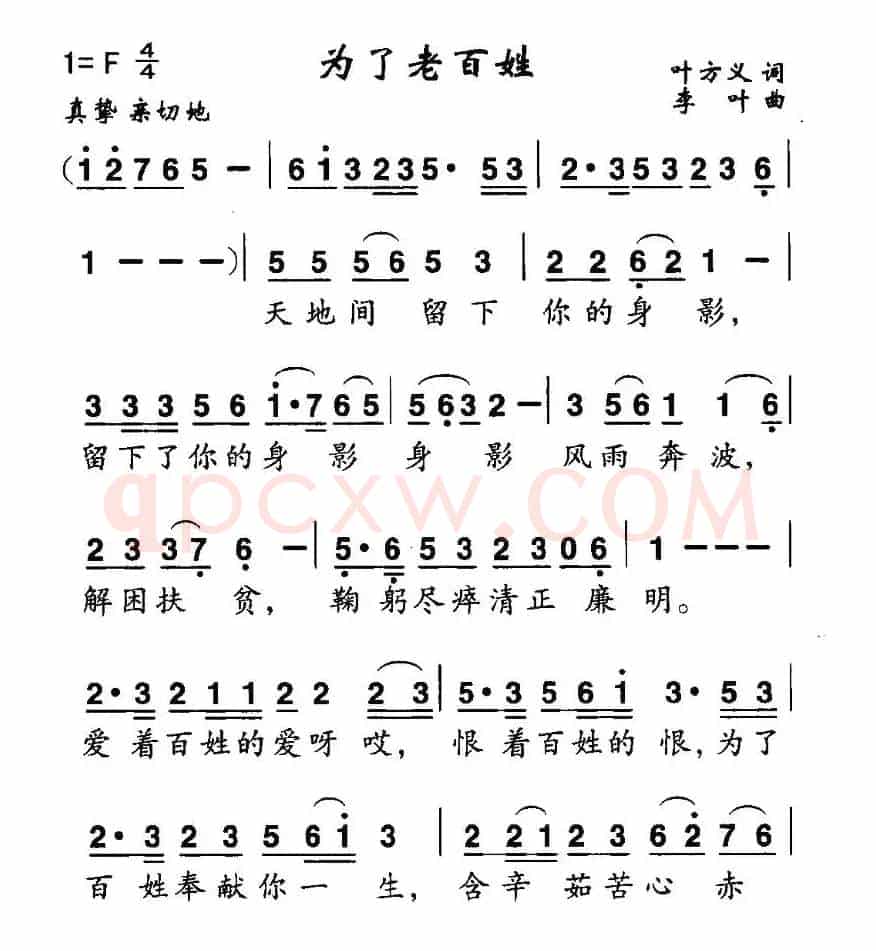 1=F 4/4 为了老百姓 叶方义 词
真挚 亲切地 李 叶 曲
(i̇ 2̇ 7 6 5 － | 6 i̇ 3 2 3 5 · 5 3 | 2 · 3 5 3 2 3 6̣ |
1 － － －) | 5 5 5 6 5 3 | 2 2 6̣ 2 1 － |
天地间 留下 你的身 影，
3 3 3 5 6 i̇ · 7 6 5 | 5 6̣ 3 2 － | 3 5 6 1 1 6̣ |
留下了你的身 影 身 影 风雨奔 波，
qpcxw.COM
2 3 3 7̣ 6̣ － | 5̣ · 6̣ 5 3 2 3 0 6̣ | 1 － － －
解困扶 贫， 鞠 躬尽瘁清正 廉 明。
2 · 3 2 1 1 2 2 2 3 | 5 · 3 5 6 i̇ 3 · 5 3 |
爱 着百姓的爱呀 哎， 恨 着百姓的 恨，为了
2 · 3 2 3 5 6 i̇ 3 | 2 2 1 2 3 6 2̇ 7 6 |
百 姓奉献你一 生， 含辛 茹苦心 赤